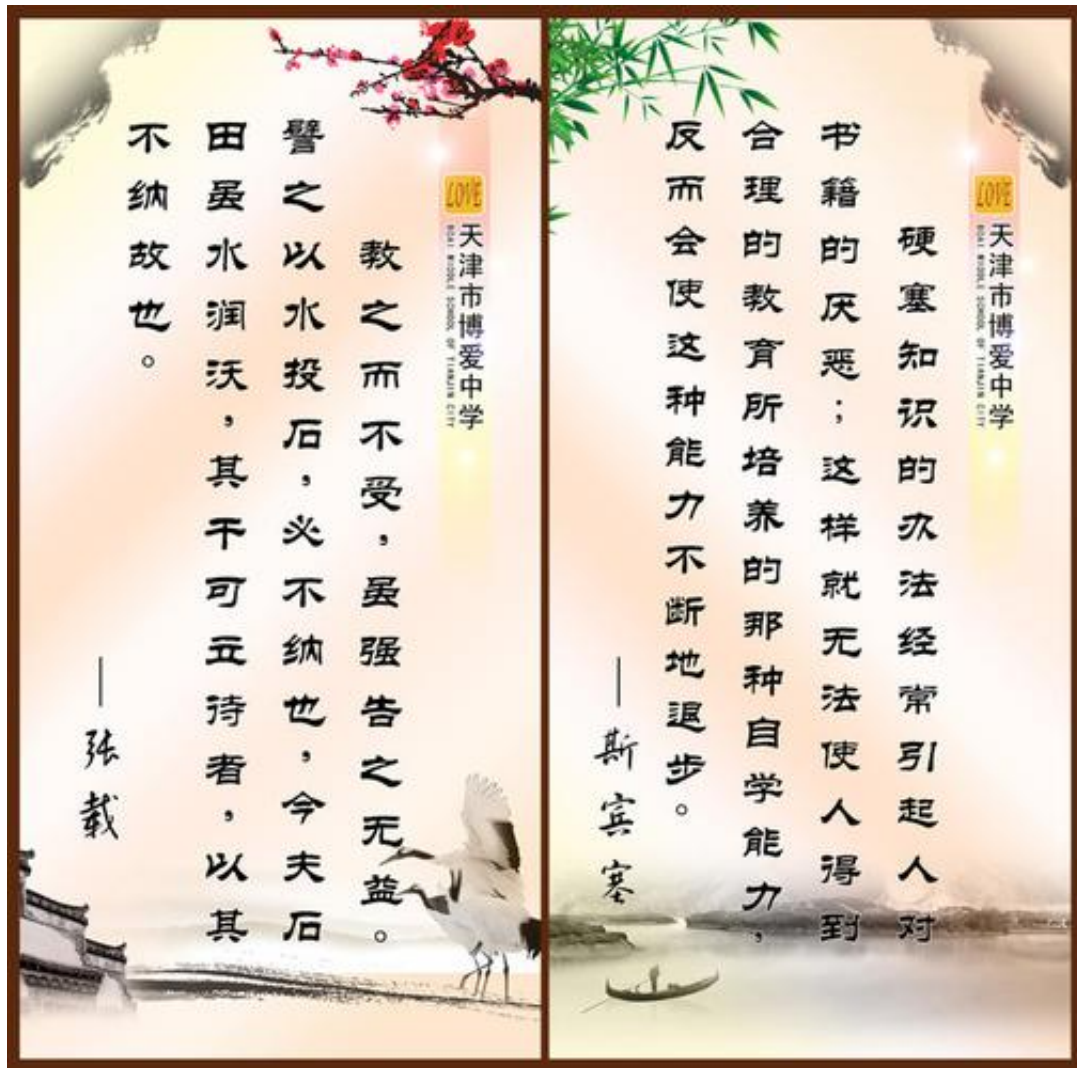 LOVE
天津市博爱中学
BOAI MIDDLE SCHOOL OF TIANJIN CITY
硬塞知识的办法经常引起人对
书籍的厌恶；这样就无法使人得到
合理的教育所培养的那种自学能力，
反而会使这种能力不断地退步。
——斯宾塞
LOVE
天津市博爱中学
BOAI MIDDLE SCHOOL OF TIANJIN CITY
教之而不受，虽强告之无益。
譬之以水投石，必不纳也，今夫石
田虽水润沃，其干可立待者，以其
不纳故也。
——张载